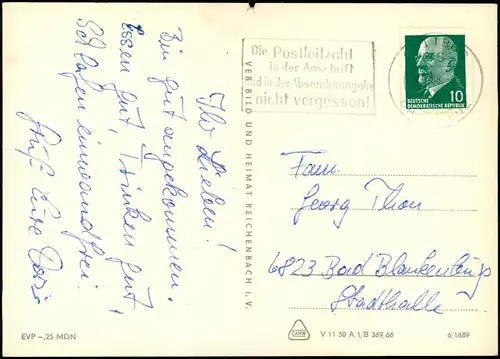 Ihr Lieben!
Bin gut angekommen.
Essen gut, Trinken gut,
Schlafen einwandfrei.
Eure
VEB BILD UND HEIMAT REICHENBACH I. V.
Die Postleitzahl
in der Anschrift
und in der Absenderangabe
nicht vergessen!
10
DEUTSCHE
DEMOKRATISCHE REPUBLIK
Fam.
Georg Thon
6823 Bad Blankenburg
Stadthalle
EVP -,25 MDN
V 11 50 A 1/B 369,66
6/1689